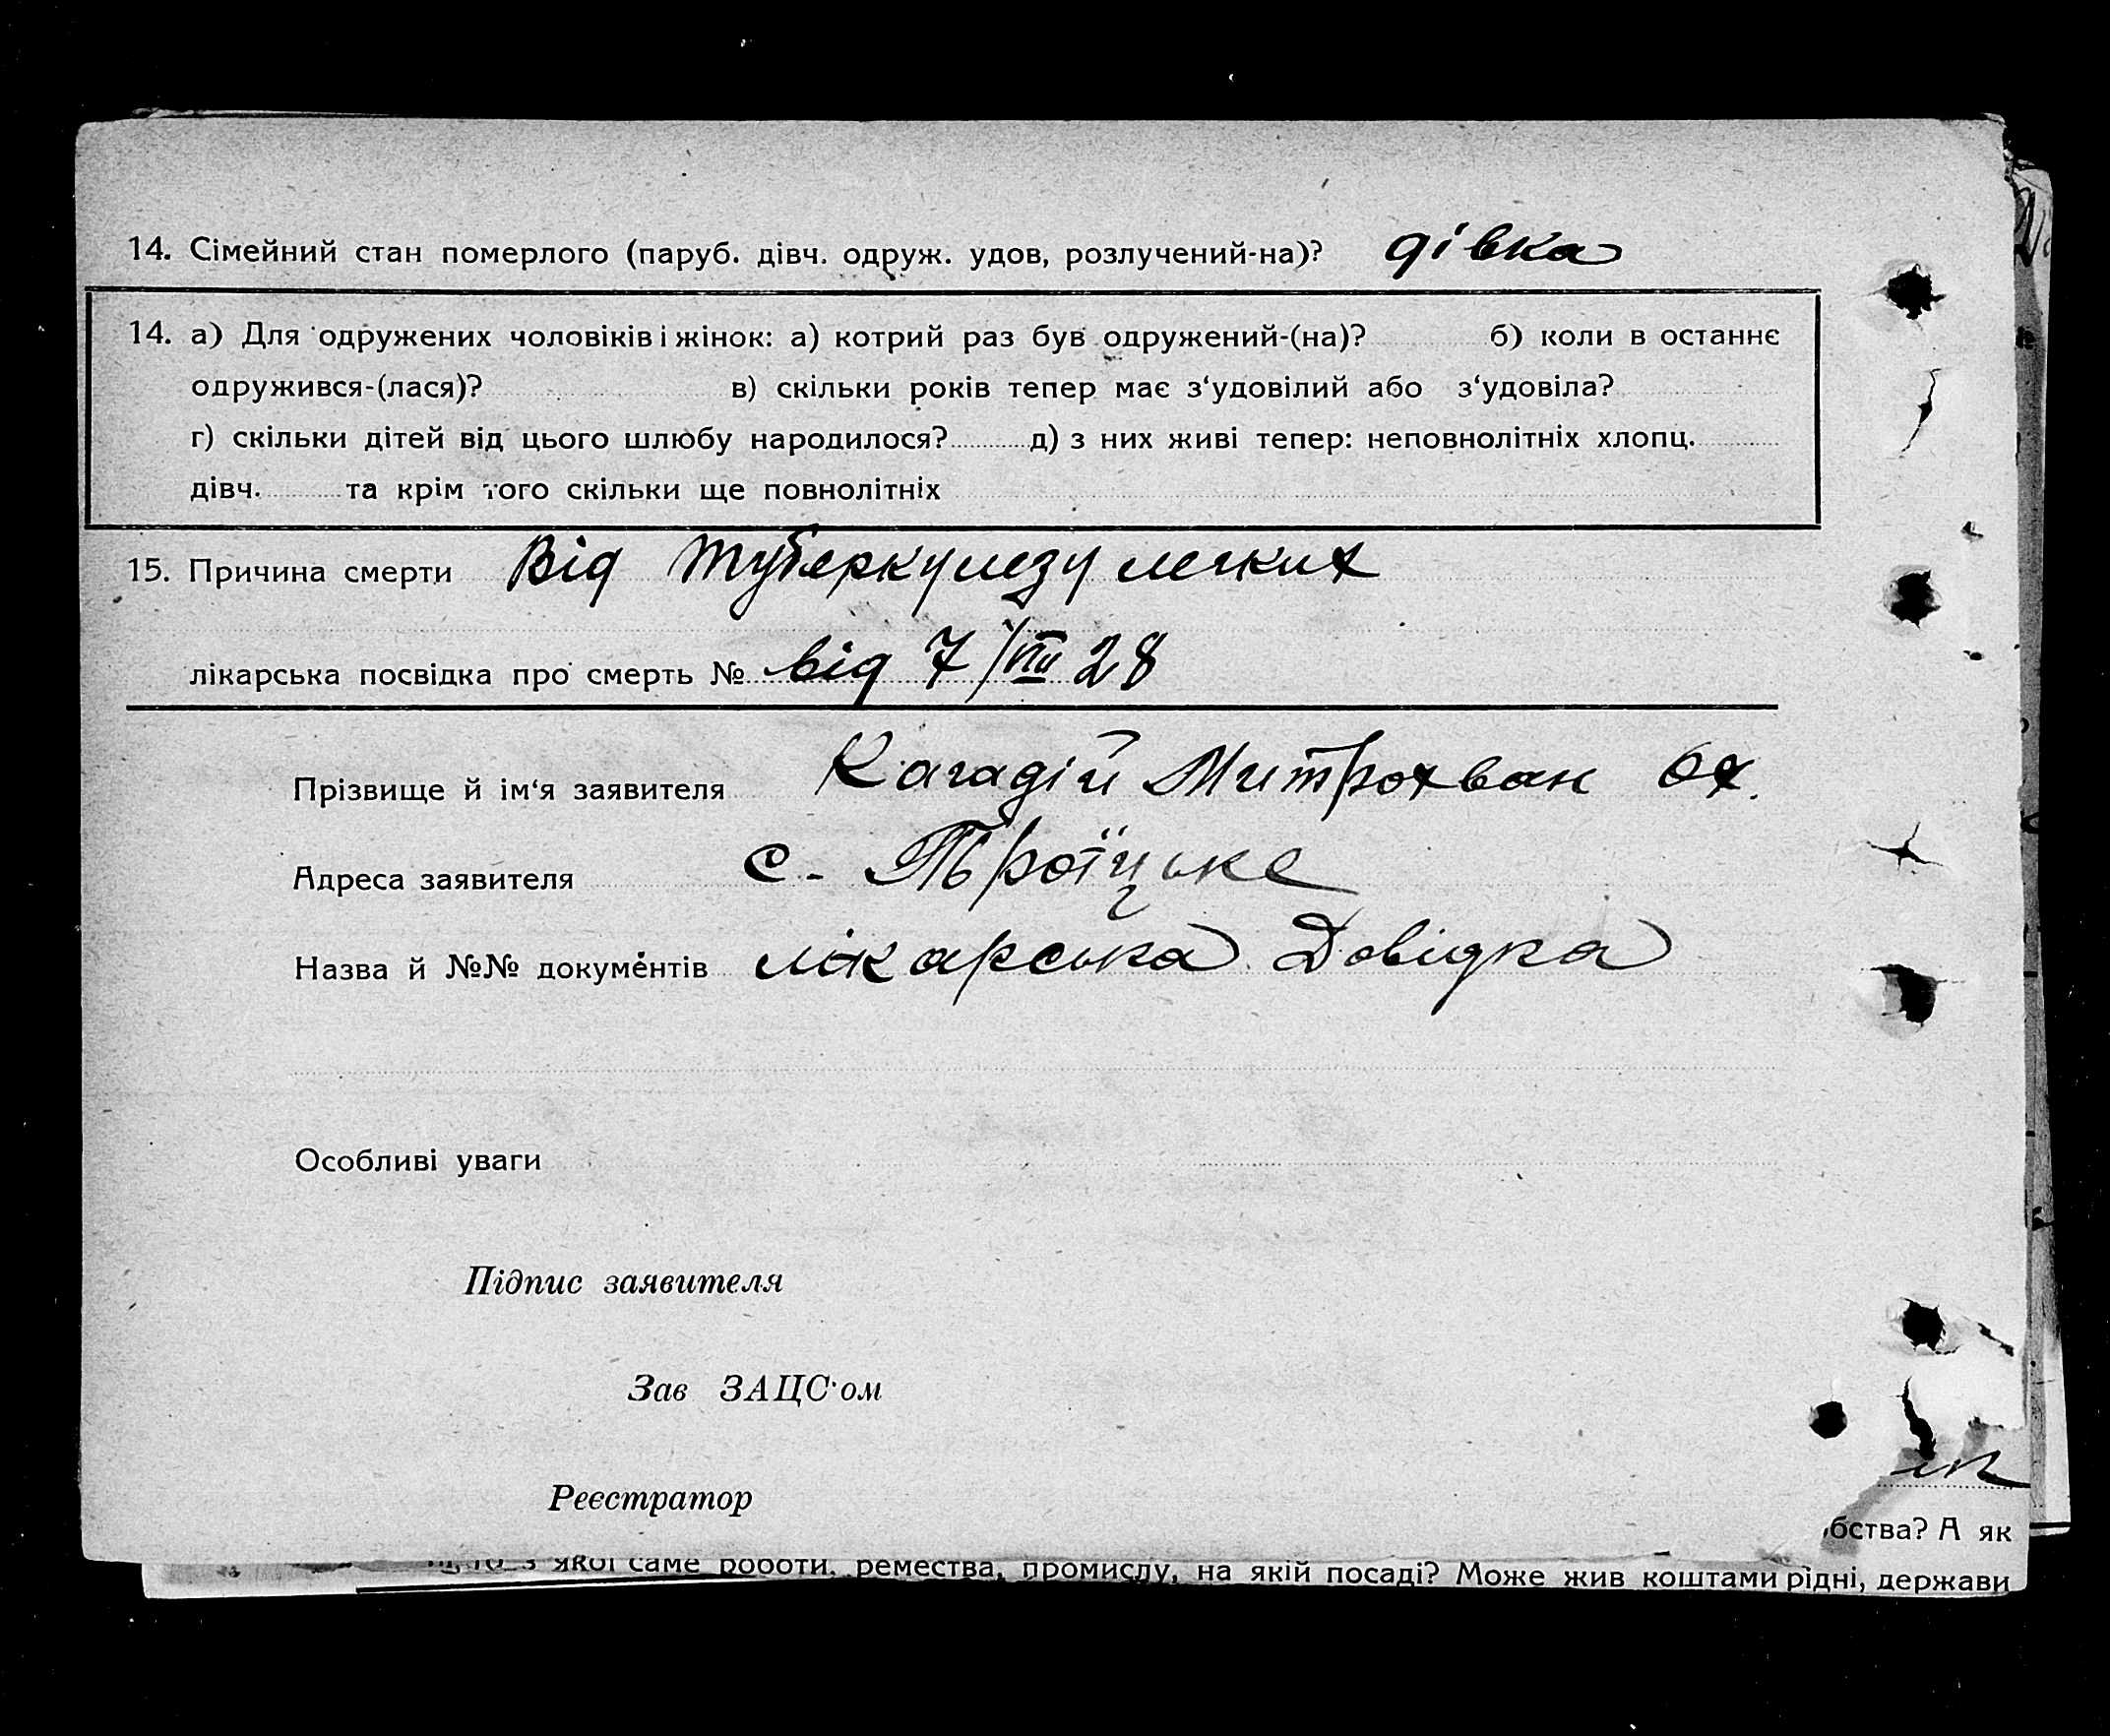 14. Сімейний стан померлого (паруб. дівч. одруж. удов, розлучений-на)? дівка
14. а) Для одружених чоловіків і жінок: а) котрий раз був одружений-(на)? б) коли в останнє
одружився-(лася)? в) скільки років тепер має з‘удовілий або з‘удовіла?
г) скільки дітей від цього шлюбу народилося? д) з них живі тепер: неповнолітніх хлопц.
дівч. та крім того скільки ще повнолітніх
15. Причина смерти Від туберкулезу легких
лікарська посвідка про смерть № від 7/VIII 28
Прізвище й ім‘я заявителя Кагадій Митрохван Ох.
Адреса заявителя с. Троїцьке
Назва й №№ документів лікарська Довідка
Особливі уваги
Підпис заявителя
Зав ЗАЦС‘ом
Реєстратор
бства? А як
якої саме роботи, ремества, промислу, на якій посаді? Може жив коштами рідні, держави